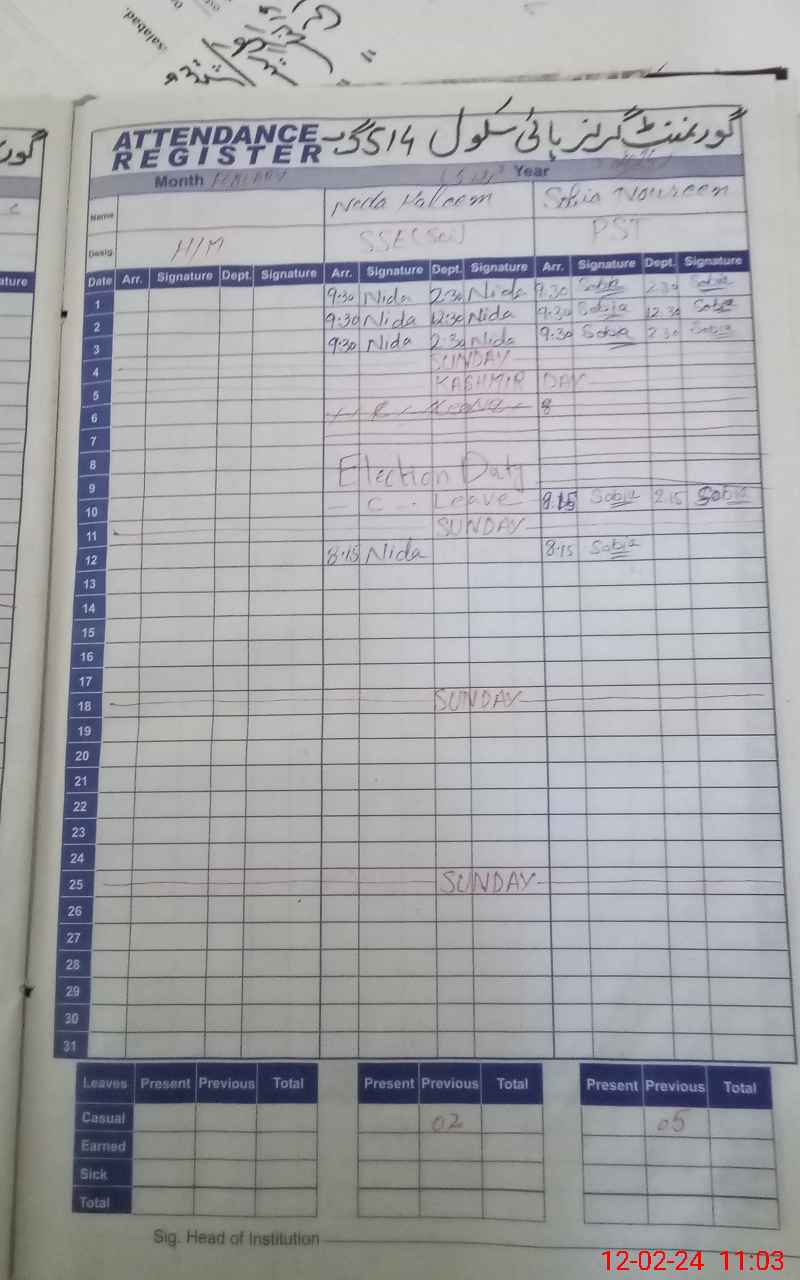 salabad.
گورنمنٹ گرلز ہائی سکول 514 گ ب
ATTENDANCE
REGISTER
Month Year
Name Neda Haleem Sobia Noureen
Desig. H/M SSE (Sci) PST
Date Arr. Signature Dept. Signature Arr. Signature Dept. Signature Arr. Signature Dept. Signature
1 9:30 Nida 2:30 Nida 9:30 Sobia 2:30 Sobia
2 9:30 Nida 12:30 Nida 9:30 Sobia 12:30 Sobia
3 9:30 Nida 2:30 Nida 9:30 Sobia 2:30 Sobia
4 SUNDAY
5 KASHMIR DAY
6 8
7
8
9 Election Duty
10 C Leave 8:15 Sobia 2:15 Sobia
11 SUNDAY
12 8:15 Nida 8:15 Sobia
13
14
15
16
17
18 SUNDAY
19
20
21
22
23
24
25 SUNDAY
26
27
28
29
30
31
Leaves Present Previous Total Present Previous Total Present Previous Total
Casual 02 05
Earned
Sick
Total
Sig. Head of Institution
12-02-24 11:03